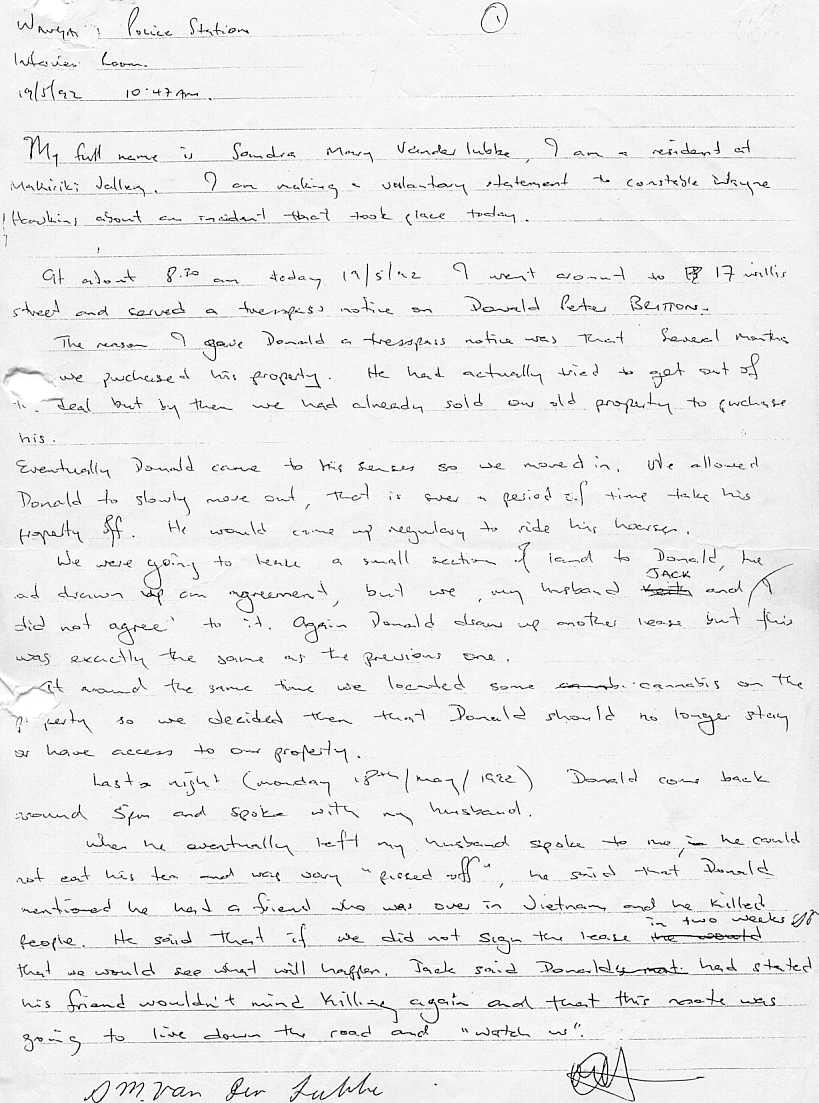 1
Police Station
Interview Room.
19/5/92 10:47am.
My full name is Sandra Mary Vander Lubbe, I am a resident at
Makiriki Valley. I am making a voluntary statement to constable Wayne
Hawkins about an incident that took place today.
At about 8.30 am today 19/5/92 I went around to 17 willis
street and served a tresspass notice on Donald Peter BRITTON.
The reason I gave Donald a tresspass notice was that several months
we purchased his property. He had actually tried to get out of
deal but by then we had already sold our old property to purchase
his.
Eventually Donald came to his senses so we moved in. We allowed
Donald to slowly move out, that is over a period of time take his
property off. He would come up regulary to ride his horses.
We were going to lease a small section of land to Donald, he
ad drawn up an agreement, but we, my husband JACK and I
did not agree to it. Again Donald drew up another lease but this
was exactly the same as the previous one.
At around the same time we located some cannabis on the
perty so we decided then that Donald should no longer stay
or have access to our property.
Last night (monday 18th/may/1992) Donald come back
around 5pm and spoke with my husband.
When he eventually left my husband spoke to me, he could
not eat his tea and was very "pissed off", he said that Donald
mentioned he had a friend who was over in Vietnam and he killed
people. He said that if we did not sign the lease in two weeks
that we would see what will happen. Jack said Donald had stated
his friend wouldn't mind killing again and that this mate was
going to live down the road and "watch us".
S M. Van Der Lubbe